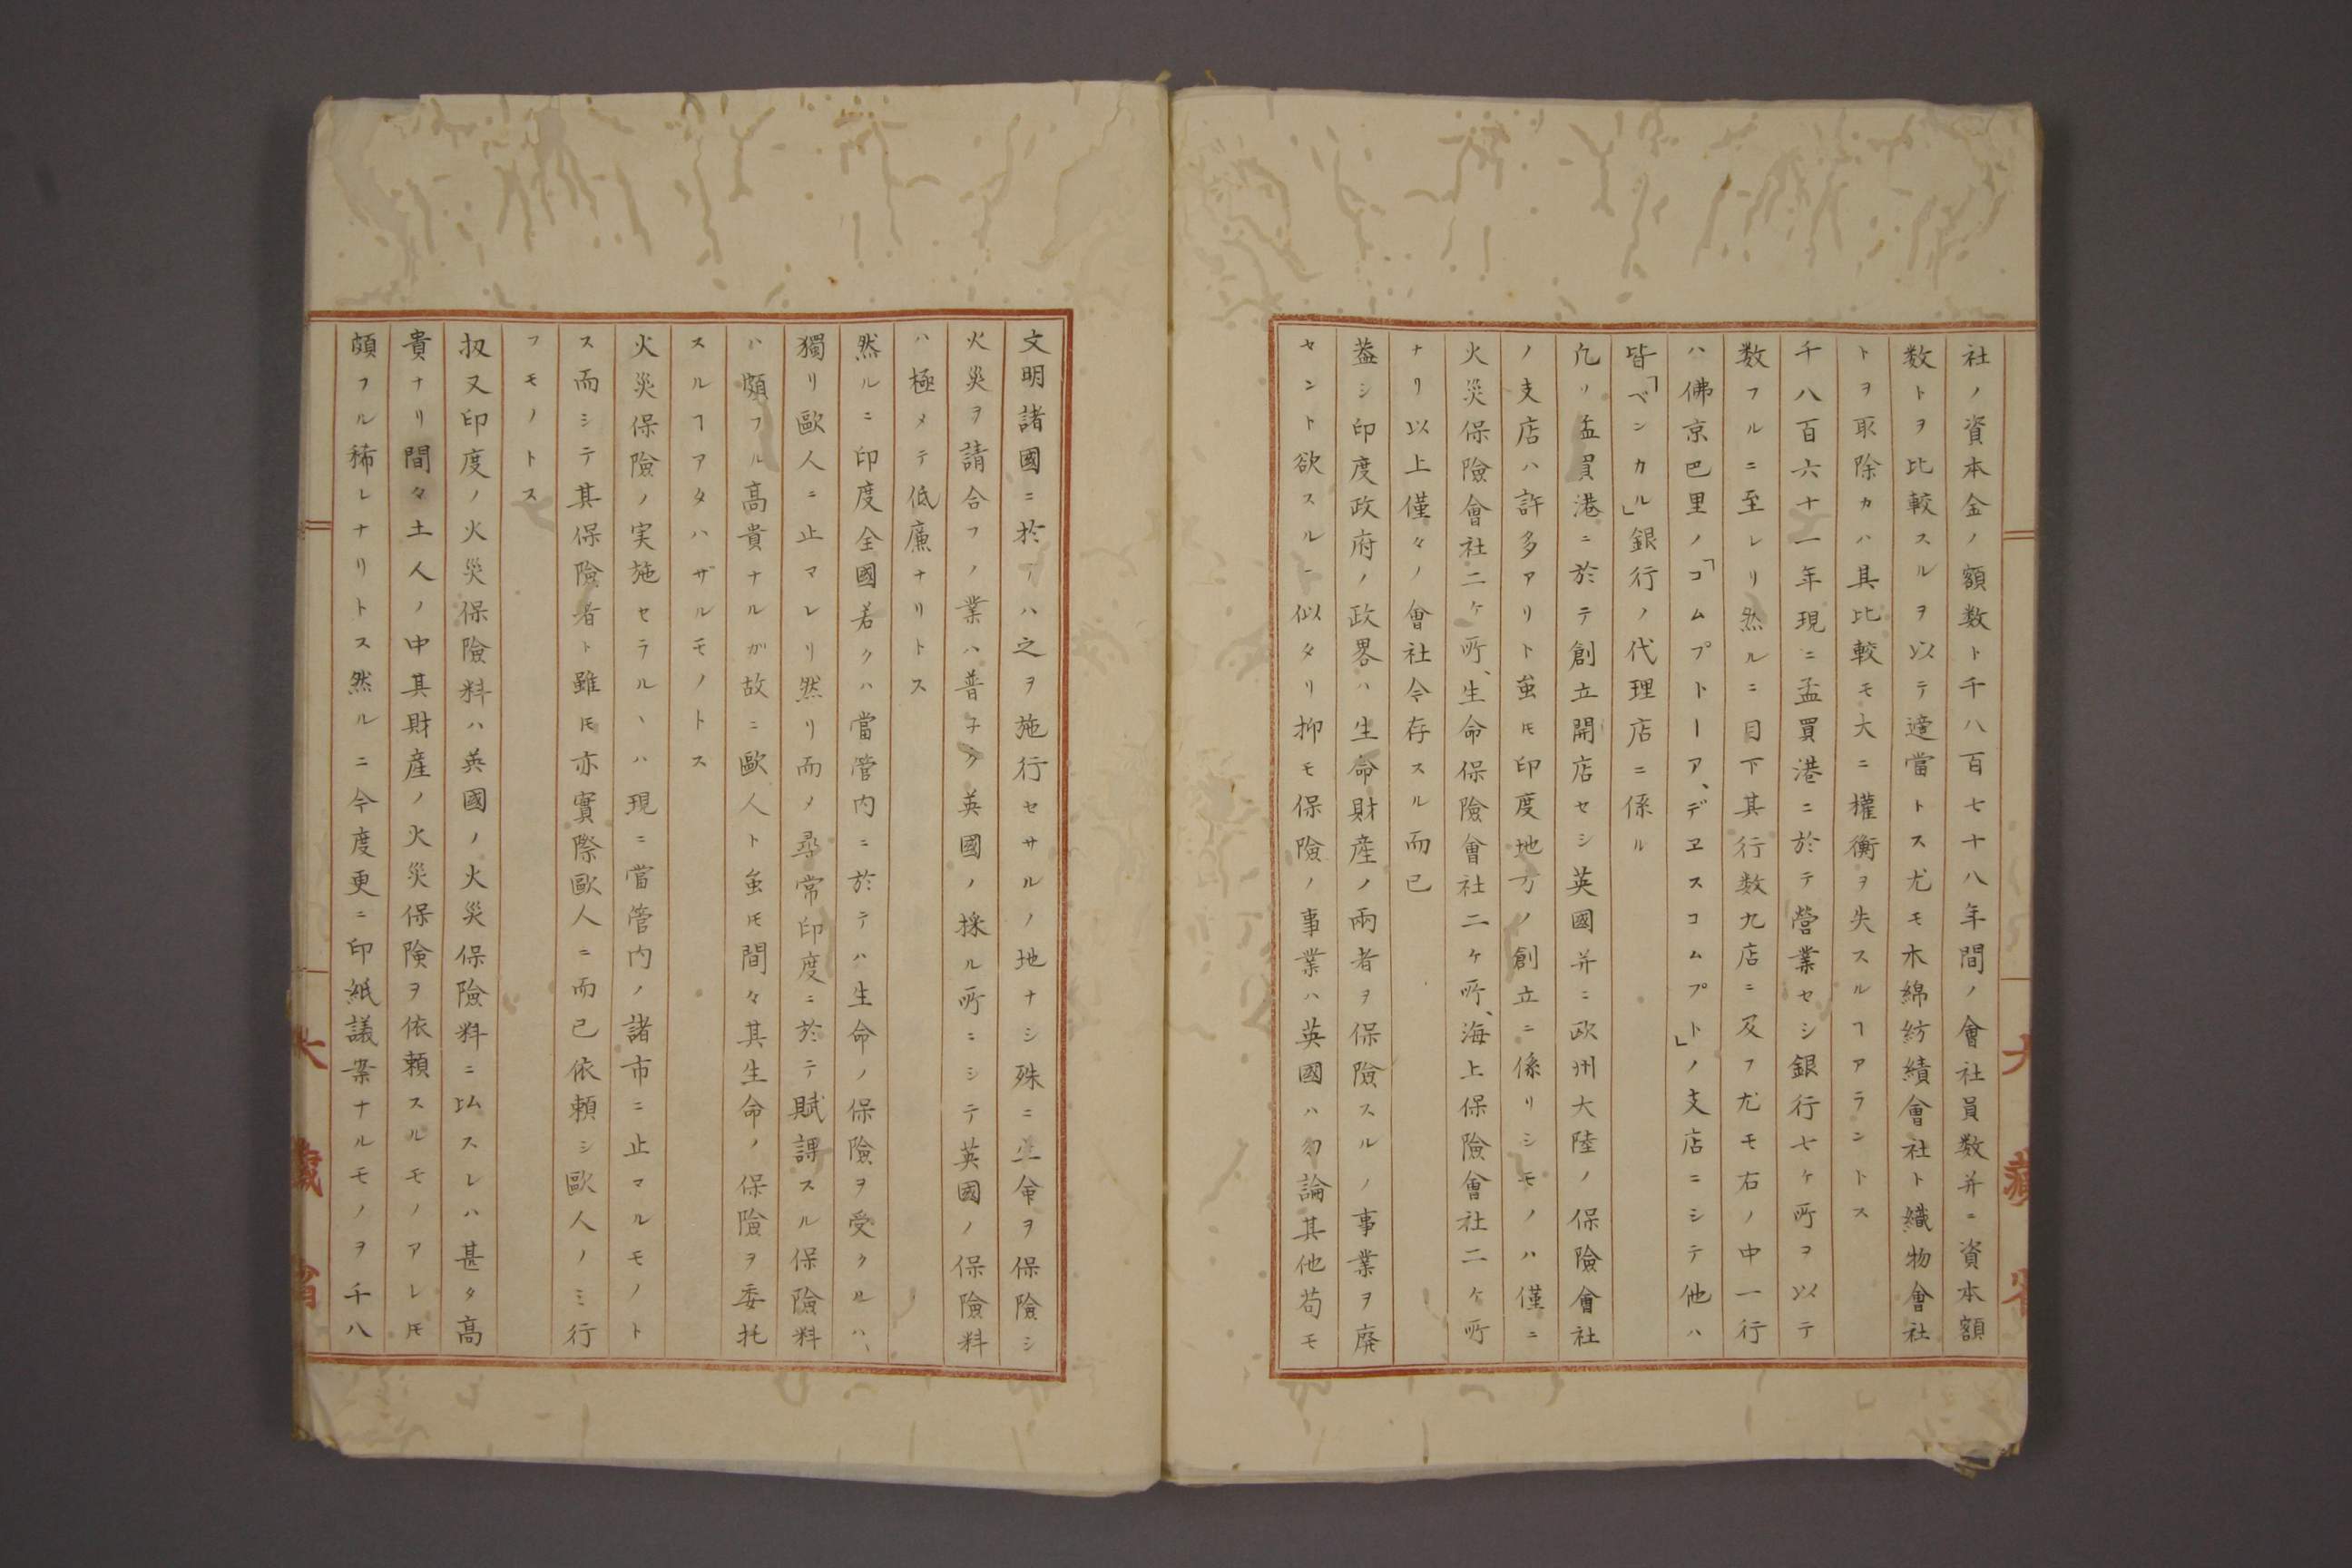 社ノ資本金ノ額数ト千八百七十八年間ノ會社員数并ニ資本額
数トヲ比較スルヲ以テ適當トス尤モ木綿紡績會社ト織物會社
トヲ取除カハ其比較モ大ニ權衡ヲ失スルヿアラントス
千八百六十一年現ニ孟買港ニ於テ營業セシ銀行七ヶ所ヲ以テ
数フルニ至レリ然ルニ目下其行数九店ニ及フ尤モ右ノ中一行
ハ佛京巴里ノ「コムプトーア、デヱスコムプト」ノ支店ニシテ他ハ
皆「ベンカル」銀行ノ代理店ニ係ル
凡ソ孟買港ニ於テ創立開店セシ英國并ニ欧州大陸ノ保險會社
ノ支店ハ許多アリト虽𪜈印度地方ノ創立ニ係リシモノハ僅ニ
火災保險會社二ヶ所、生命保險會社二ヶ所、海上保險會社二ヶ所
ナリ以上僅々ノ會社今存スル而已
蓋シ印度政府ノ政畧ハ生命財産ノ兩者ヲ保險スルノ事業ヲ廃
セント欲スルニ似タリ抑モ保險ノ事業ハ英國ハ勿論其他苟モ
大藏省
文明諸國ニ於テハ之ヲ施行セサルノ地ナシ殊ニ生命ヲ保險シ
火災ヲ請合フノ業ハ普子ク英國ノ採ル所ニシテ英國ノ保險料
ハ極メテ低廉ナリトス
然ルニ印度全國若クハ當管内ニ於テハ生命ノ保險ヲ受クルハ、
獨リ歐人ニ止マレリ然リ而メ尋常印度ニ於テ賦課スル保險料
ハ頗フル高貴ナルガ故ニ歐人ト虽𪜈間々其生命ノ保險ヲ委托
スルヿアタハザルモノトス
火災保險ノ実施セラルヽハ現ニ當管内ノ諸市ニ止マルモノト
ス而シテ其保險者ト雖𪜈亦實際歐人ニ而已依頼シ歐人ノミ行
フモノトス
扨又印度ノ火災保險料ハ英國ノ火災保險料ニ比スレハ甚タ高
貴ナリ間々土人ノ中其財産ノ火災保険ヲ依頼スルモノアレ𪜈
頗フル稀レナリトス然ルニ今度更ニ印紙議案ナルモノヲ千八
大藏省